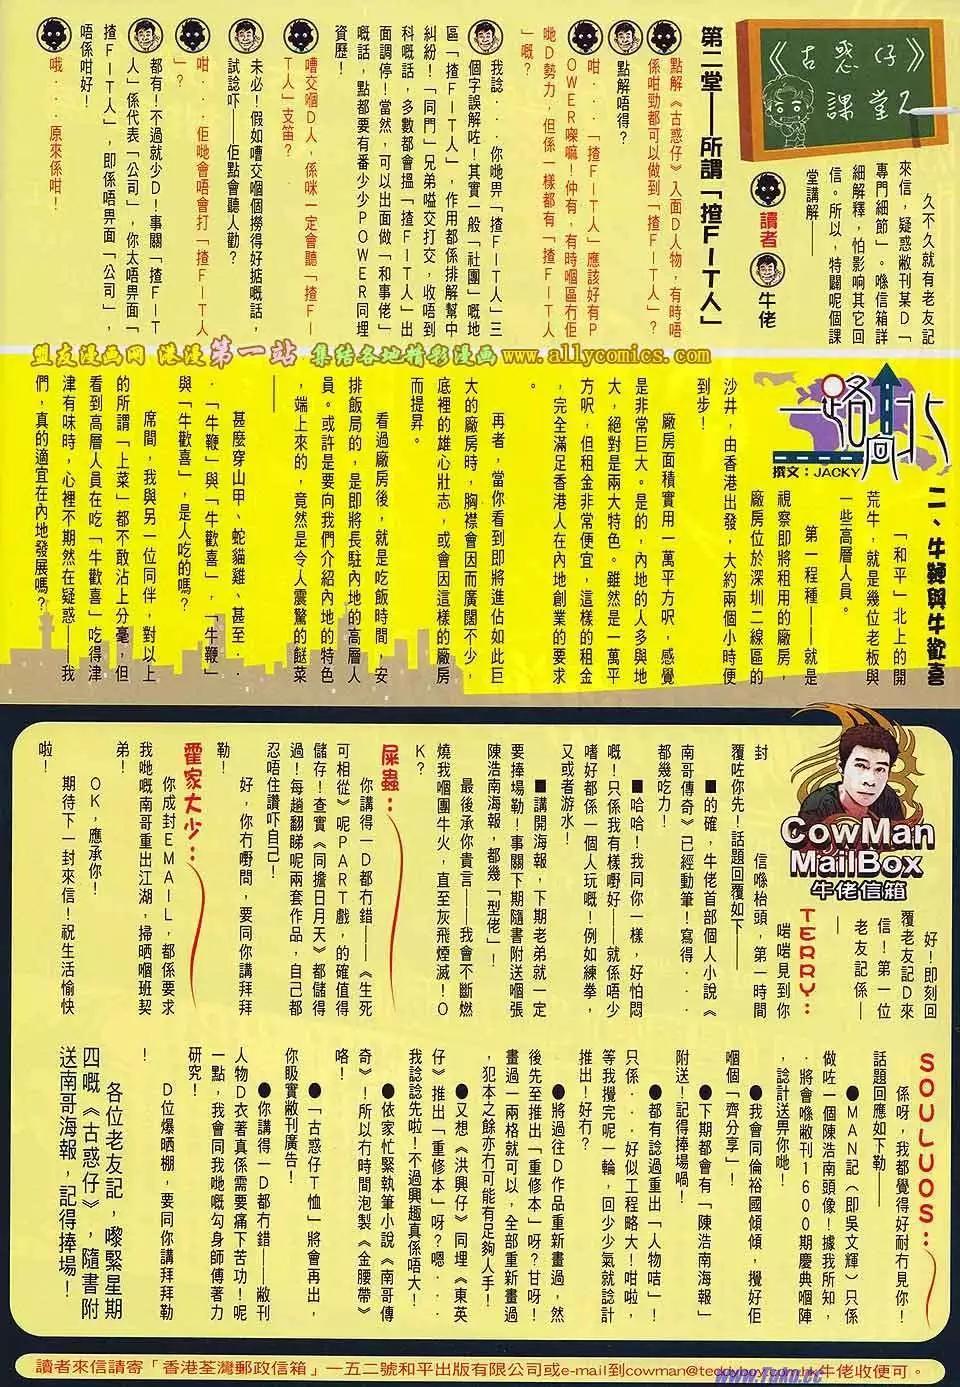 《古惑仔》
課堂2
久不久就有老友記
來信，疑惑敝刊某D「
專門細節」。喺信箱詳
細解釋，怕影响其它回
信。所以，特闢呢個課
堂講解——
讀者
牛佬
第二堂——所謂「揸FIT人」
點解《古惑仔》入面D人物，有時唔
係咁勁都可以做到「揸FIT人」？
點解唔得？
咁．．．「揸FIT人」應該好有P
OWER㗎嘛！仲有，有時嗰區冇佢
哋D勢力，但係一樣都有「揸FIT人
」嘅？
我諗．．．你哋畀「揸FIT人」三
個字誤解咗！其實一般「社團」嘅地
區「揸FIT人」，作用都係排解幫中
糾紛！「同門」兄弟嗌交打交，收唔到
科嘅話，多數都會搵「揸FIT人」出
面調停！當然，可以出面做「和事佬」
嘅話，點都要有番少少POWER同埋
資歷！
嘈交嗰D人，係咪一定會聽「揸FI
T人」支笛？
未必！假如嘈交嗰個撈得好掂嘅話，
試諗吓——佢點會聽人勸？
咁．．．佢哋會唔會打「揸FIT人
」？
都有！不過就少D！事關「揸FIT
人」係代表「公司」，你太唔畀面「
揸FIT人」，即係唔畀面「公司」，
唔係咁好！
哦．．．原來係咁！
盟友漫画网 港漫第一站 集结各地精彩漫画 www.allycomics.com
一路向北
撰文：JACKY
二、牛鞭與牛歡喜
「和平」北上的開
荒牛，就是幾位老板與
一些高層人員。
第一程種——就是
視察即將租用的廠房，
廠房位於深圳二線區的
沙井，由香港出發，大約兩個小時便
到步！
廠房面積實用一萬平方呎，感覺
是非常巨大。是的，內地的人多與地
大，絕對是兩大特色。雖然是一萬平
方呎，但租金非常便宜，這樣的租金
，完全滿足香港人在內地創業的要求
。
再者，當你看到即將進佔如此巨
大的廠房時，胸襟會因而廣闊不少，
底裡的雄心壯志，或會因這樣的廠房
而提昇。
看過廠房後，就是吃飯時間，安
排飯局的，是即將長駐內地的高層人
員。或許是要向我們介紹內地的特色
，端上來的，竟然是令人震驚的餸菜
——
甚麼穿山甲、蛇貓雞、甚至．
．「牛鞭」與「牛歡喜」，「牛鞭」
與「牛歡喜」，是人吃的嗎？
席間，我與另一位同伴，對以上
的所謂「上菜」都不敢沾上分毫，但
看到高層人員在吃「牛歡喜」吃得津
津有味時，心裡不期然在疑惑——我
們，真的適宜在內地發展嗎？
CowMan
MailBox
牛佬信箱
好！即刻回
覆老友記D來
信！第一位
老友記係—
—
TERRY：
啱啱見到你
信喺枱頭，第一時間
封
覆咗你先！話題回覆如下——
■的確，牛佬首部個人小說《
南哥傳奇》已經動筆！寫得．．
都幾吃力！
■哈哈！我同你一樣，好怕悶
嘅！只係我有樣嘢好——就係唔少
嗜好都係一個人玩嘅！例如練拳，
又或者游水！
■講開海報，下期老弟就一定
要捧場勒！事關下期隨書附送嗰張
陳浩南海報，都幾「型佬」！
最後承你貴言——我會不斷燃
燒我嗰團牛火，直至灰飛煙滅！O
K？
屎蟲：
你講得一D都冇錯——《生死
可相從》呢PART戲，的確值得
儲存！查實《同擔日月天》都儲得
過！每趟翻睇呢兩套作品，自己都
忍唔住讚吓自己！
好，你冇嘢問，要同你講拜拜
勒！
霍家大少：
你成封EMAIL，都係要求
我哋嘅南哥重出江湖，掃晒嗰班契
弟！
OK，應承你！
期待下一封來信！祝生活愉快
啦！
SOULUOS：
係呀，我都覺得好耐冇見你！
話題回應如下勒——
●MAN記（即吳文輝）只係
做咗一個陳浩南頭像！據我所知，
將會喺敝刊1600期慶典嗰陣
，諗計送畀你哋！
●我會同倫裕國傾傾，攪好佢
嗰個「齊分享」！
●下期都會有「陳浩南海報」
附送！記得捧場喎！
●都有諗過重出「人物咭」！
只係．．好似工程略大！咁啦，
等我攪完呢一輪，回少少氣就諗計
推出！好冇？
●將過往D作品重新畫過，然
後先至推出「重修本」呀？甘呀！
畫過一兩格就可以，全部重新畫過
，犯本之餘亦冇可能有足夠人手！
●又想《洪興仔》同埋《東英
仔》推出「重修本」呀？嗯．．
我諗諗先啦！不過興趣真係唔大！
●依家忙緊執筆小說《南哥傳
奇》！所以冇時間泡製《金腰帶》
咯！
●「古惑仔T恤」將會再出，
你睩實敝刊廣告！
●你講得一D都冇錯——敝刊
人物D衣著真係需要痛下苦功！呢
一點，我會同我哋嘅勾身師傅著力
研究！
D位爆晒棚，要同你講拜拜勒
！
各位老友記，嚟緊星期
四嘅《古惑仔》，隨書附
送南哥海報，記得捧場！
讀者來信請寄「香港荃灣郵政信箱」一五二號和平出版有限公司或e-mail到cowman@teddyboy.com.hk牛佬收便可。
www.Tuku.cc